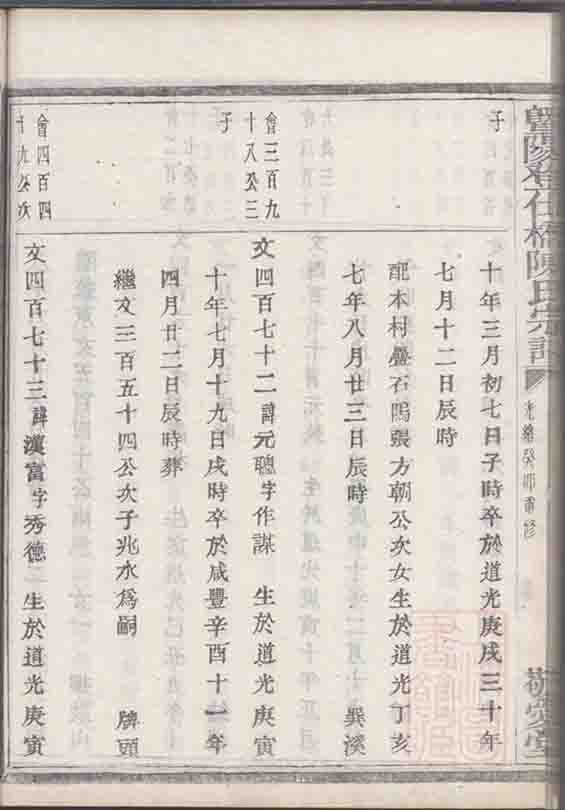 暨陽孝義橋陳氏宗譜
光緒癸卯重修
敬愛堂
子
十年三月初七日子時卒於道光庚戌三十年
七月十二日辰時
配本村疊石塢張方朝公次女生於道光丁亥
七年八月廿三日辰時 巽溪
會三百九
十八公三
子
文四百七十二諱元聰字作謀 生於道光庚寅
十年七月十九日戌時卒於咸豐辛酉十一年
四月廿二日辰時葬
繼文三百五十四公次子兆水為嗣 牌頭
會四百四
十九公次
文四百七十三諱漢富字秀德 生於道光庚寅